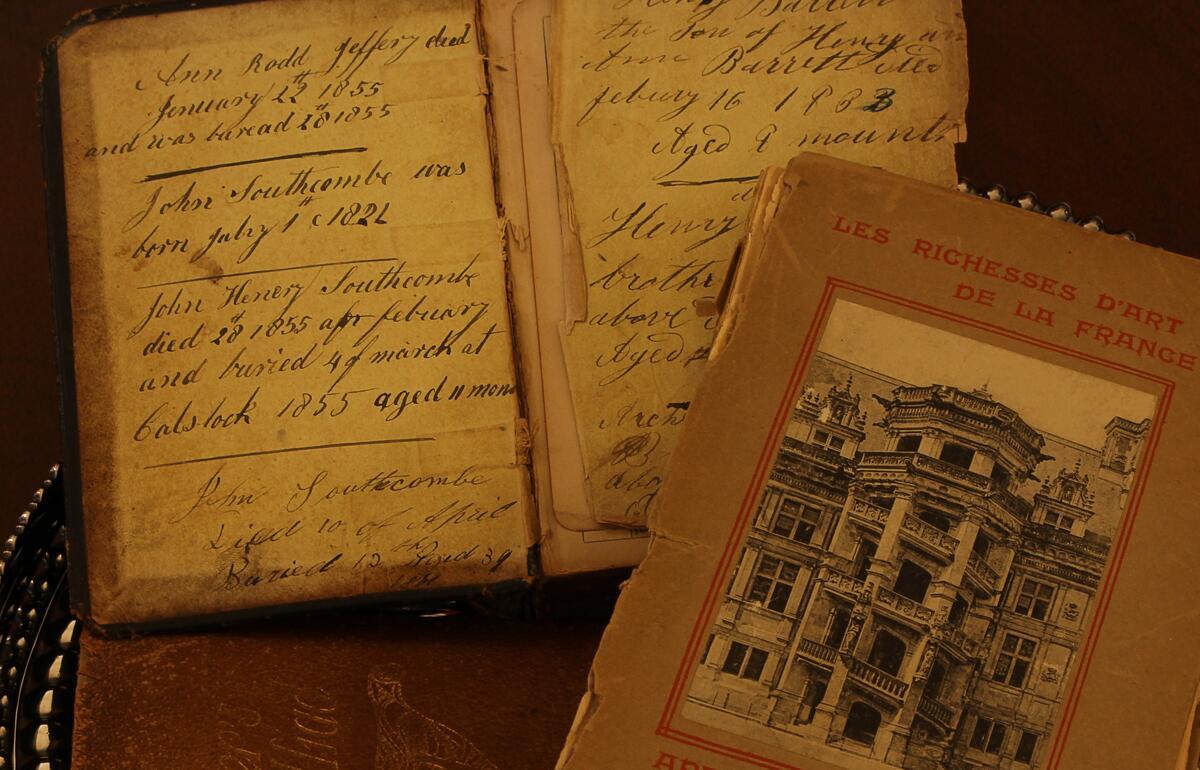 Ann Rodd Jeffery died
Jenuary 22th 1855
and was buread 28th 1855
John Southcombe was
born July 1st 1821
John Henery Southcombe
died 28th 1855 febuary
and buried 4 of march at
Calstock 1855 aged 11 mon
John Southcombe
Died 10 of April
Buried 13th Aged 39
Henry Barrett
the Son of Henry an
Ann Barrett died
febury 16 18
Aged 9 mounth
Henry
brothr
above
Aged
LES RICHESSES D'ART
DE LA FRANCE